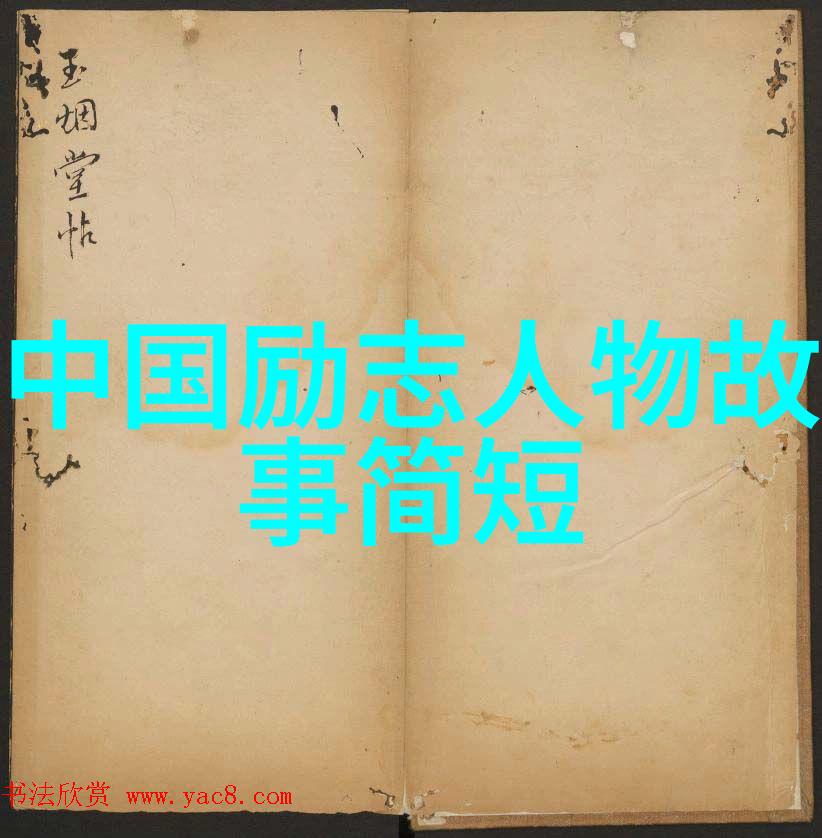 玉烟堂帖
中国励志人物故
事简短
书法欣赏 www.yac8.com